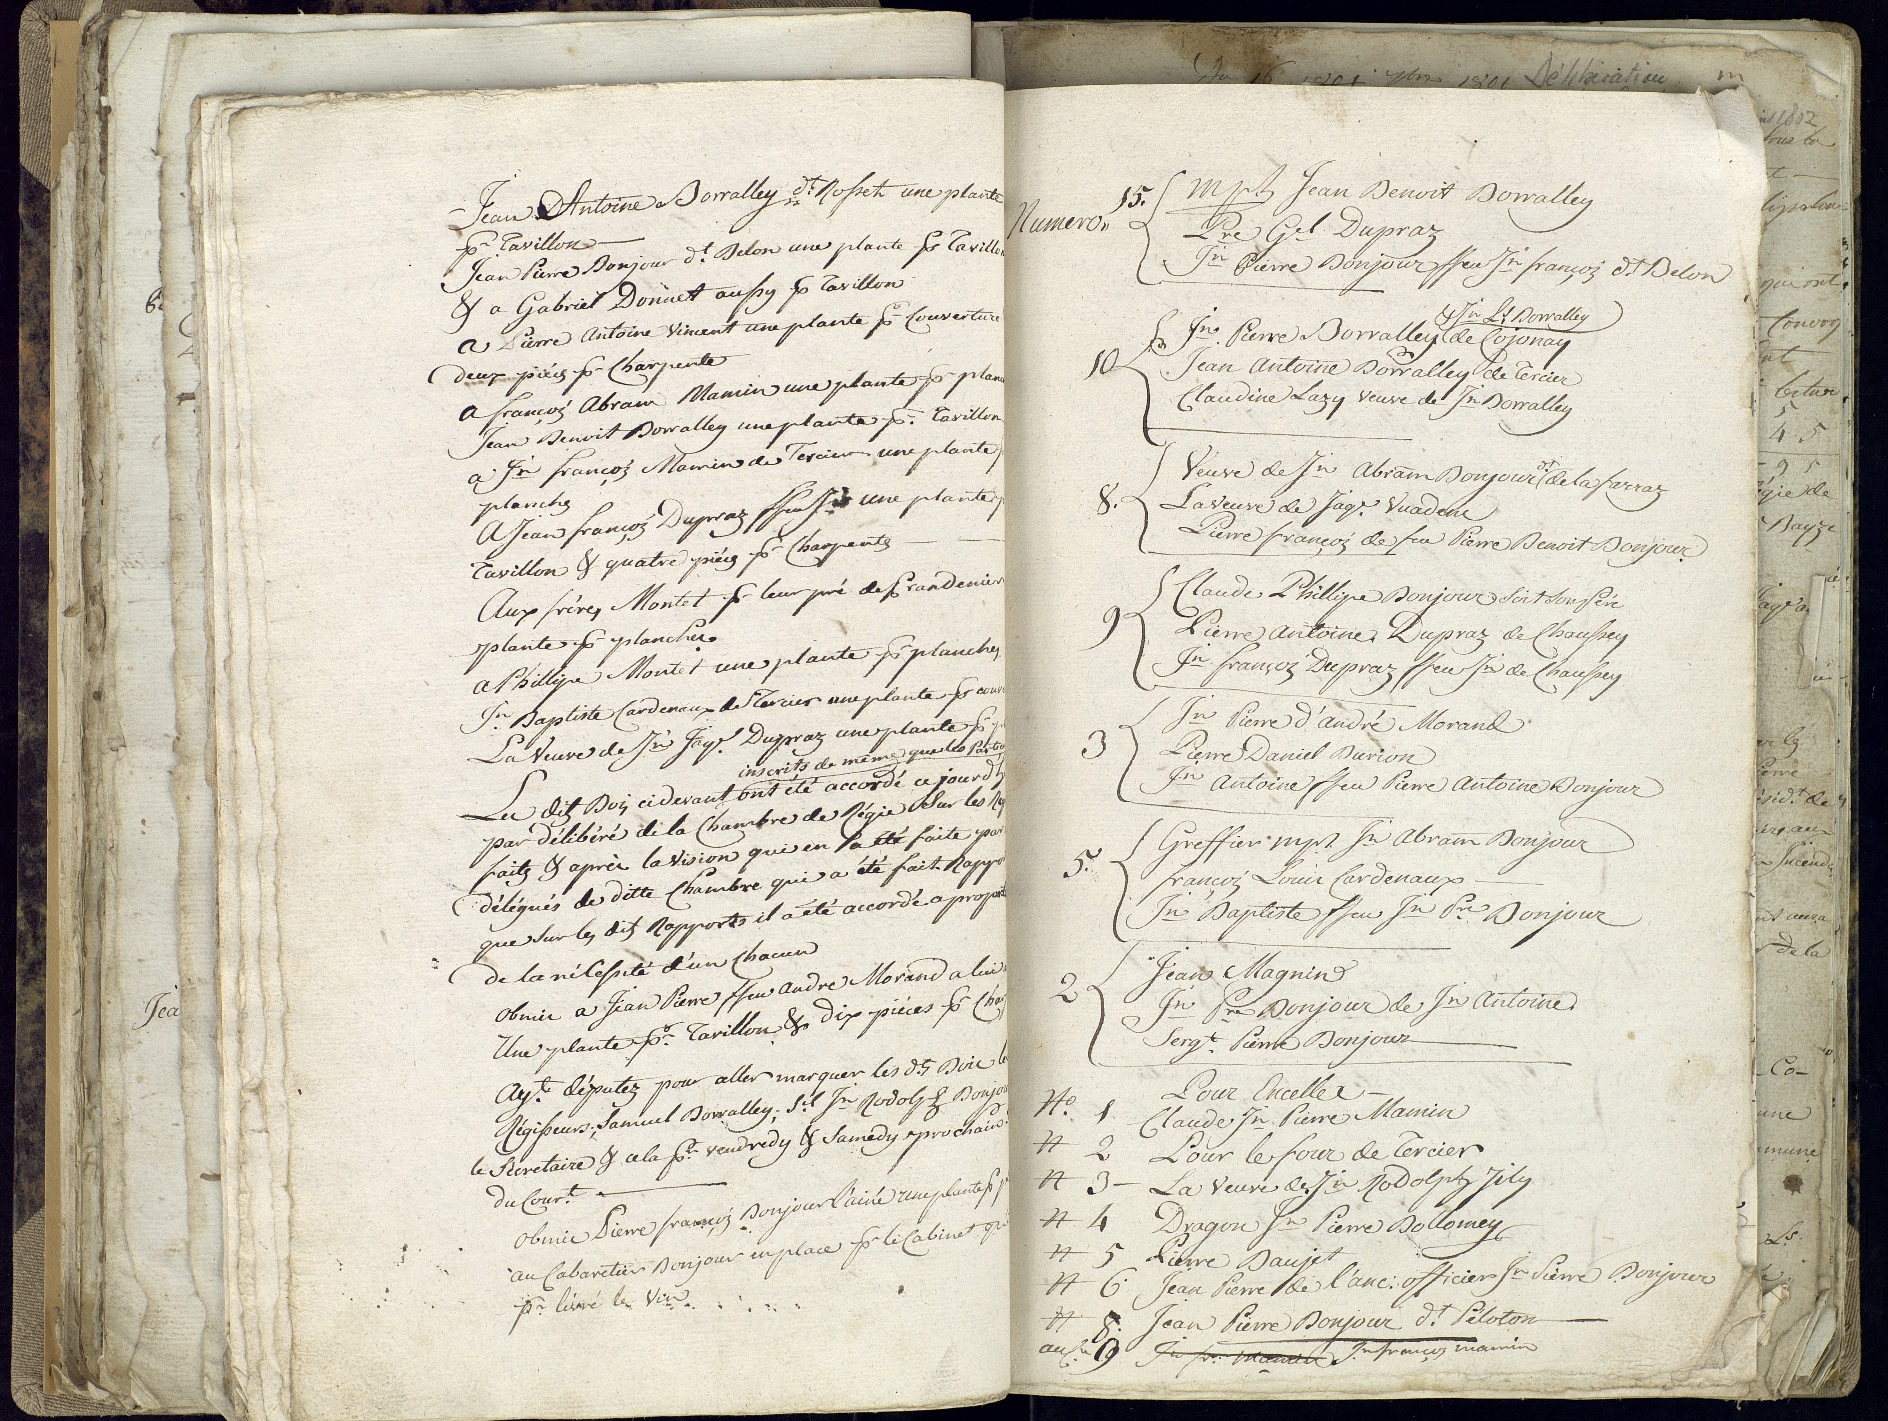 Jean D Antoine Borralley dt. Rosset une plante
pr Tavillon
Jean Pierre Bonjour dt. Belon une plante pr Tavillon
& a Gabriel Donnet aussy pr Tavillon
a Pierre Antoine Vincent une plante pr Couverture
deux piéces pr Charpente
a françois Abram Mamin une plante pr planc
Jean Benoit Borralley une plante pr. Tavillon
a Jn françois Mamin de Tercier une plante
planches
A Jean françois Dupraz ffeu Jn une plante
Tavillon & quatre piéces pr Charpente
Aux fréres Montet pr leur pré de
plante pr plancher
a Phillipe Montet une plante pr planches
Jn Baptiste Cardenaux de Tercier une plante pr couv
La Veuve de Jn Jaqs. Dupraz une plante pr
inscrits de même que les Partic
Le dit Bois cidevant ont été accordé ce jourd'h
par délibéré de la Chambre de Régie Sur les
faits & après la Vision qui en a été faite par
délégués de ditte Chambre qui a été fait Rappo
que sur les dits Rapports il a été accordé a proport
de la nécéssité d'un Chacun
obmis a Jean Pierre ffeu andre Morand a lui
Une plante pr. Tavillon & dix piéces pr Char
Ayt. députez pour aller marquer les dts Bois le
Régisseurs, Samuel Borralley, Jn Rodolph Bonjou
le Secretaire & cela pr. vendredy & Samedy prochain
du Court.
obmis Pierre françois Bonjour l'ainé une plante pr
au Cabaretier Bonjour en place pr le Cabinet
pr livré le Vin
Numero 15. mpt Jean Benoit Borralley
Pre Gel Dupraz
Jn Pierre Bonjour ffeu Jn françois dt Belon
& Jn Ls Borralley
Jn Pierre Borralley de Cojonay
10 Jean Antoine Borralley de Tercier
Claudine Lazy veuve de Jn Borralley
Veuve de Jn Abram Bonjour dt de la sarraz
8. La veuve de Jaqs. Vuadens
Pierre françois de feu Pierre Benoit Bonjour
Claude Phillipe Bonjour
9 Pierre Antoine Dupraz de Chaussey
Jn françois Dupraz ffeu Jn de Chaussey
Jn Pierre d'andré Morand
3 Pierre Daniel Burion
Jn Antoine ffeu Pierre Antoine Bonjour
Greffier mpt Jn Abram Bonjour
5. françois Louis Cardenaux
Jn Baptiste ffeu Jn Pre Bonjour
Jean Magnin
2 Jn Pre Bonjour de Jn Antoine
Sergt. Pierre Bonjour
Pour Enceller
No. 1 Claude Jn Pierre Mamin
" 2 Pour le four de Tercier
" 3 La Veuve de Jn Rodolph Jily
" 4 Dragon Jn Pierre Bolomey
" 5 Pierre Baujet
" 6 Jean Pierre de l'anc. officier Jn Pierre Bonjour
" 8. Jean Pierre Bonjour dt Peloton
9 Jn françois mamin